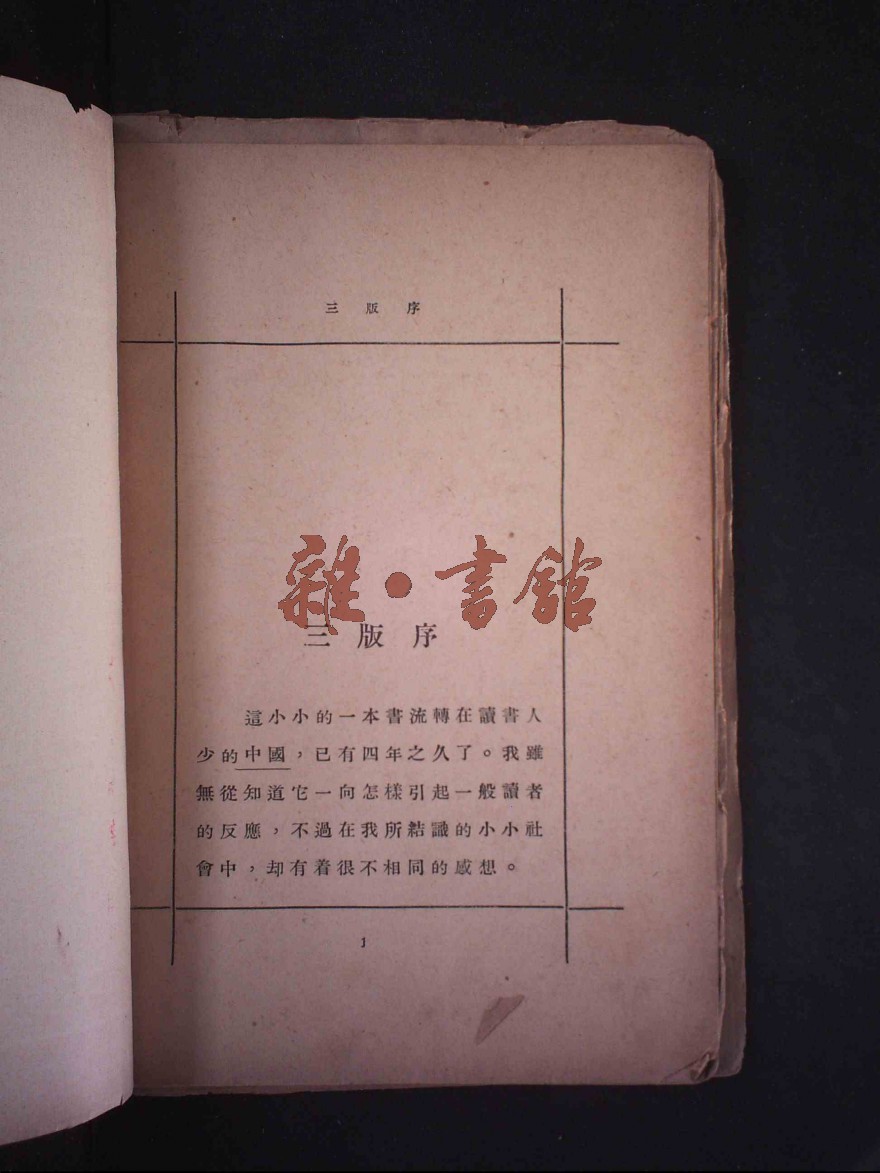 三版序
雜·書館
三版序
這小小的一本書流轉在讀書人
少的中國，已有四年之久了。我雖
無從知道它一向怎樣引起一般讀者
的反應，不過在我所結識的小小社
會中，却有着很不相同的感想。
1